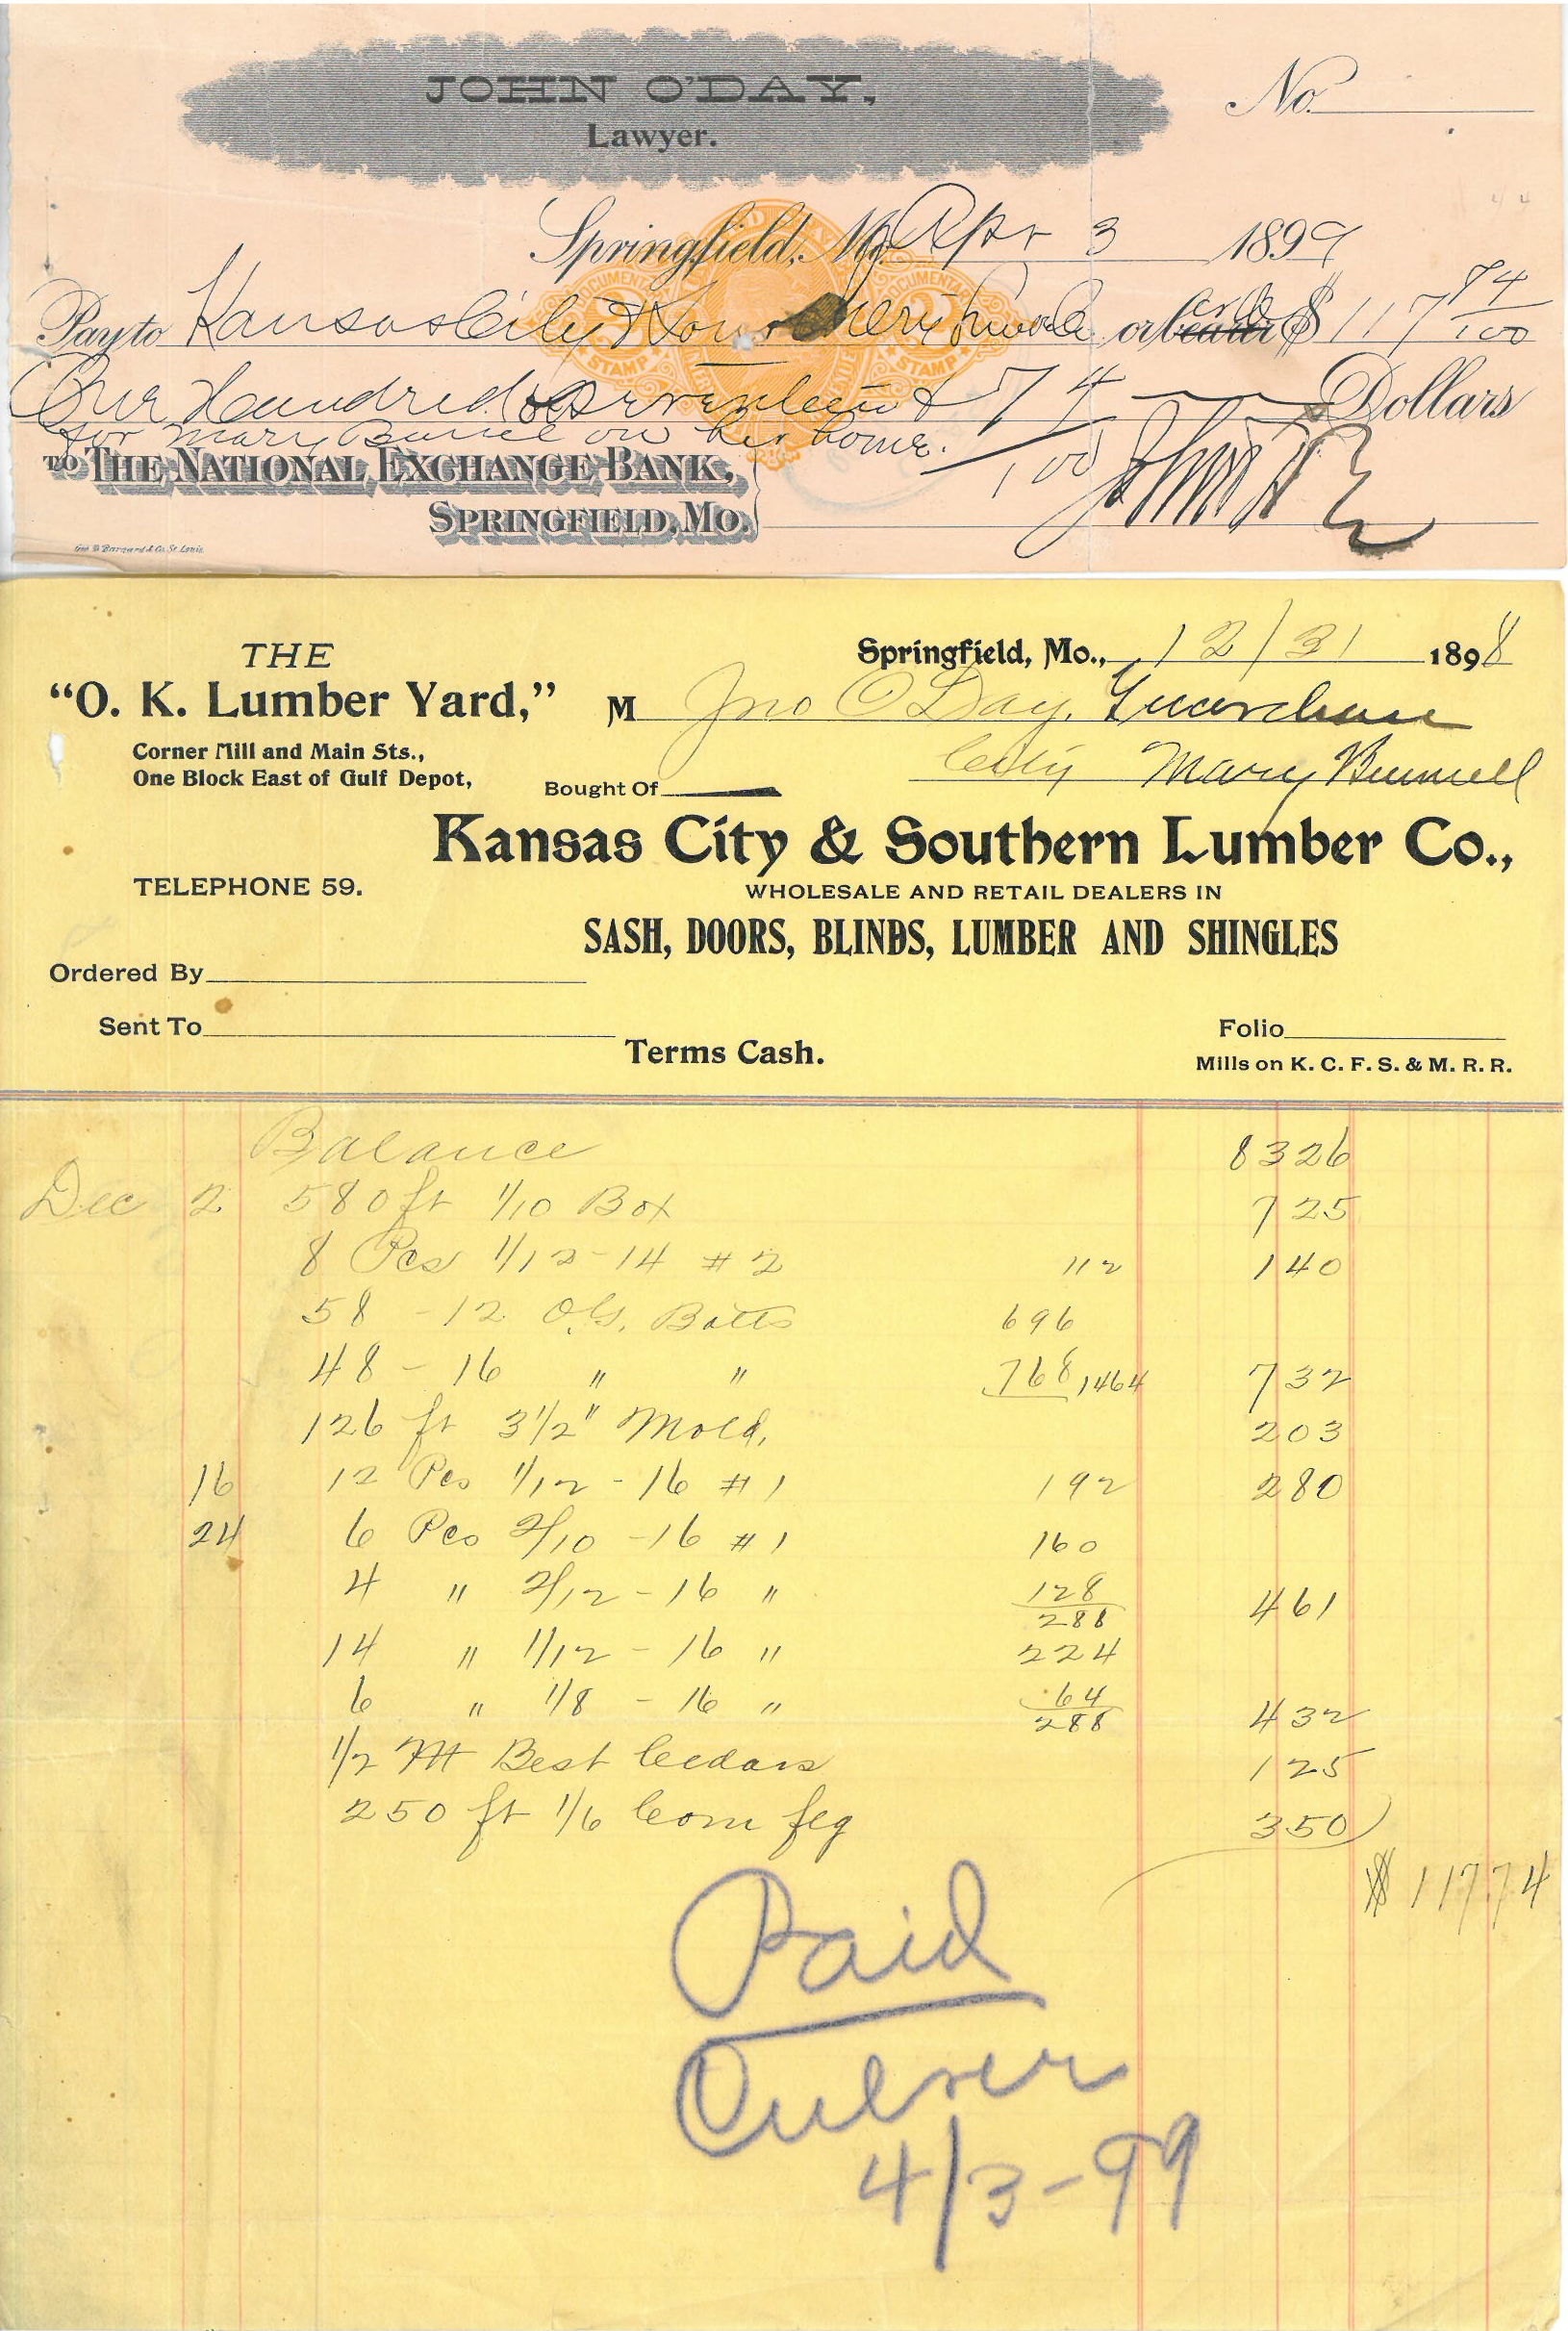 JOHN O'DAY,
Lawyer.
No.
Springfield, Mo. Apr 3 1899
Pay to Kansas City & Sou or bearer order $ 117 74/100
One Hundred & Seventeen & 74/100 Dollars
for Mary Bunel on her home.
TO THE NATIONAL EXCHANGE BANK,
SPRINGFIELD, MO.
DOCUMENTARY DOCUMENTARY
STAMP STAMP
Geo. D. Barnard & Co. St. Louis.
THE
"O. K. Lumber Yard,"
Corner Mill and Main Sts.,
One Block East of Gulf Depot,
Springfield, Mo., 12/31 1898
M Jno O'Day, Guardian
City Mary Bunnell
Bought Of
Kansas City & Southern Lumber Co.,
TELEPHONE 59.
WHOLESALE AND RETAIL DEALERS IN
SASH, DOORS, BLINDS, LUMBER AND SHINGLES
Ordered By
Sent To
Terms Cash.
Folio
Mills on K. C. F. S. & M. R. R.
Balance 83 26
Dec 2 580 ft 1/10 Box 7 25
8 Pcs 1/12 - 14 # 2 112 1 40
58 - 12 O.G. Batts 696
48 - 16 " " 768 1464 7 32
126 ft 3 1/2" Mold, 2 03
16 12 Pcs 1/12 - 16 # 1 192 2 80
24 6 Pcs 2/10 - 16 # 1 160
4 " 2/12 - 16 " 128
288 4 61
14 " 1/12 - 16 " 224
6 " 1/8 - 16 " 64
288 4 32
1/2 M Best Cedars 1 25
250 ft 1/6 Com flg 3 50
$ 117 74
Paid
Culver
4/3-99